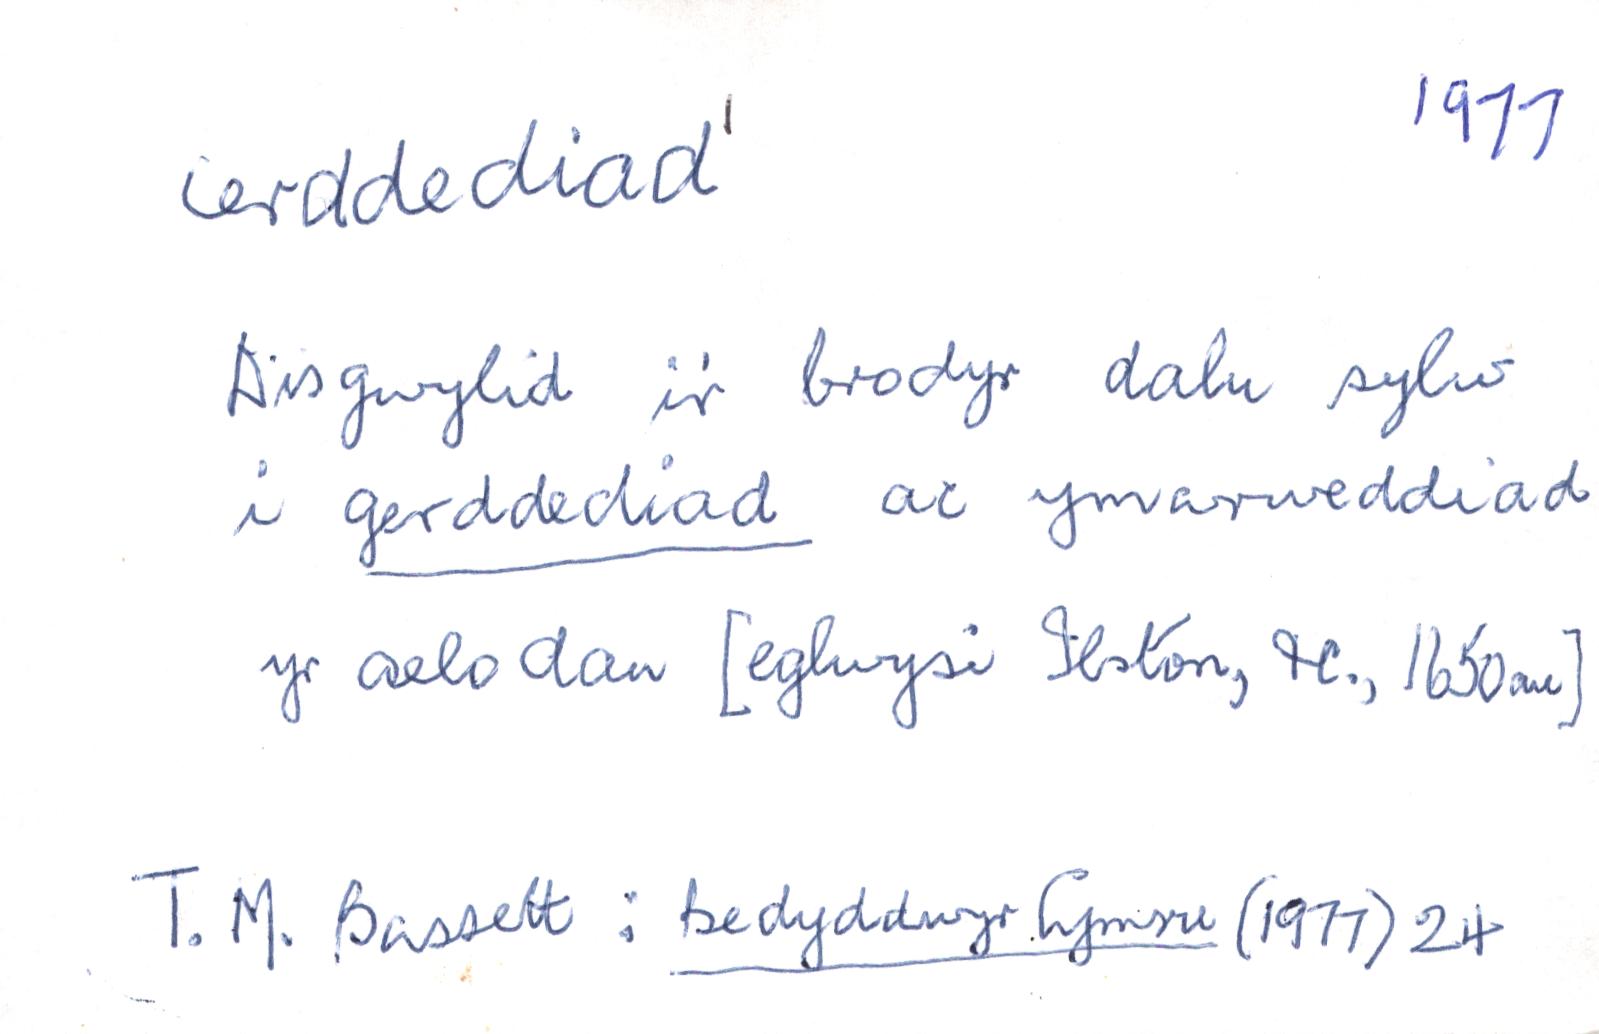 1977
cerddediad¹
Disgwylid i'r brodyr dalu sylw
i gerddediad ac ymarweddiad
yr aelodau [eglwysi Ilston, &c., 1650au]
T. M. Bassett : Bedyddwyr Cymru (1977) 24